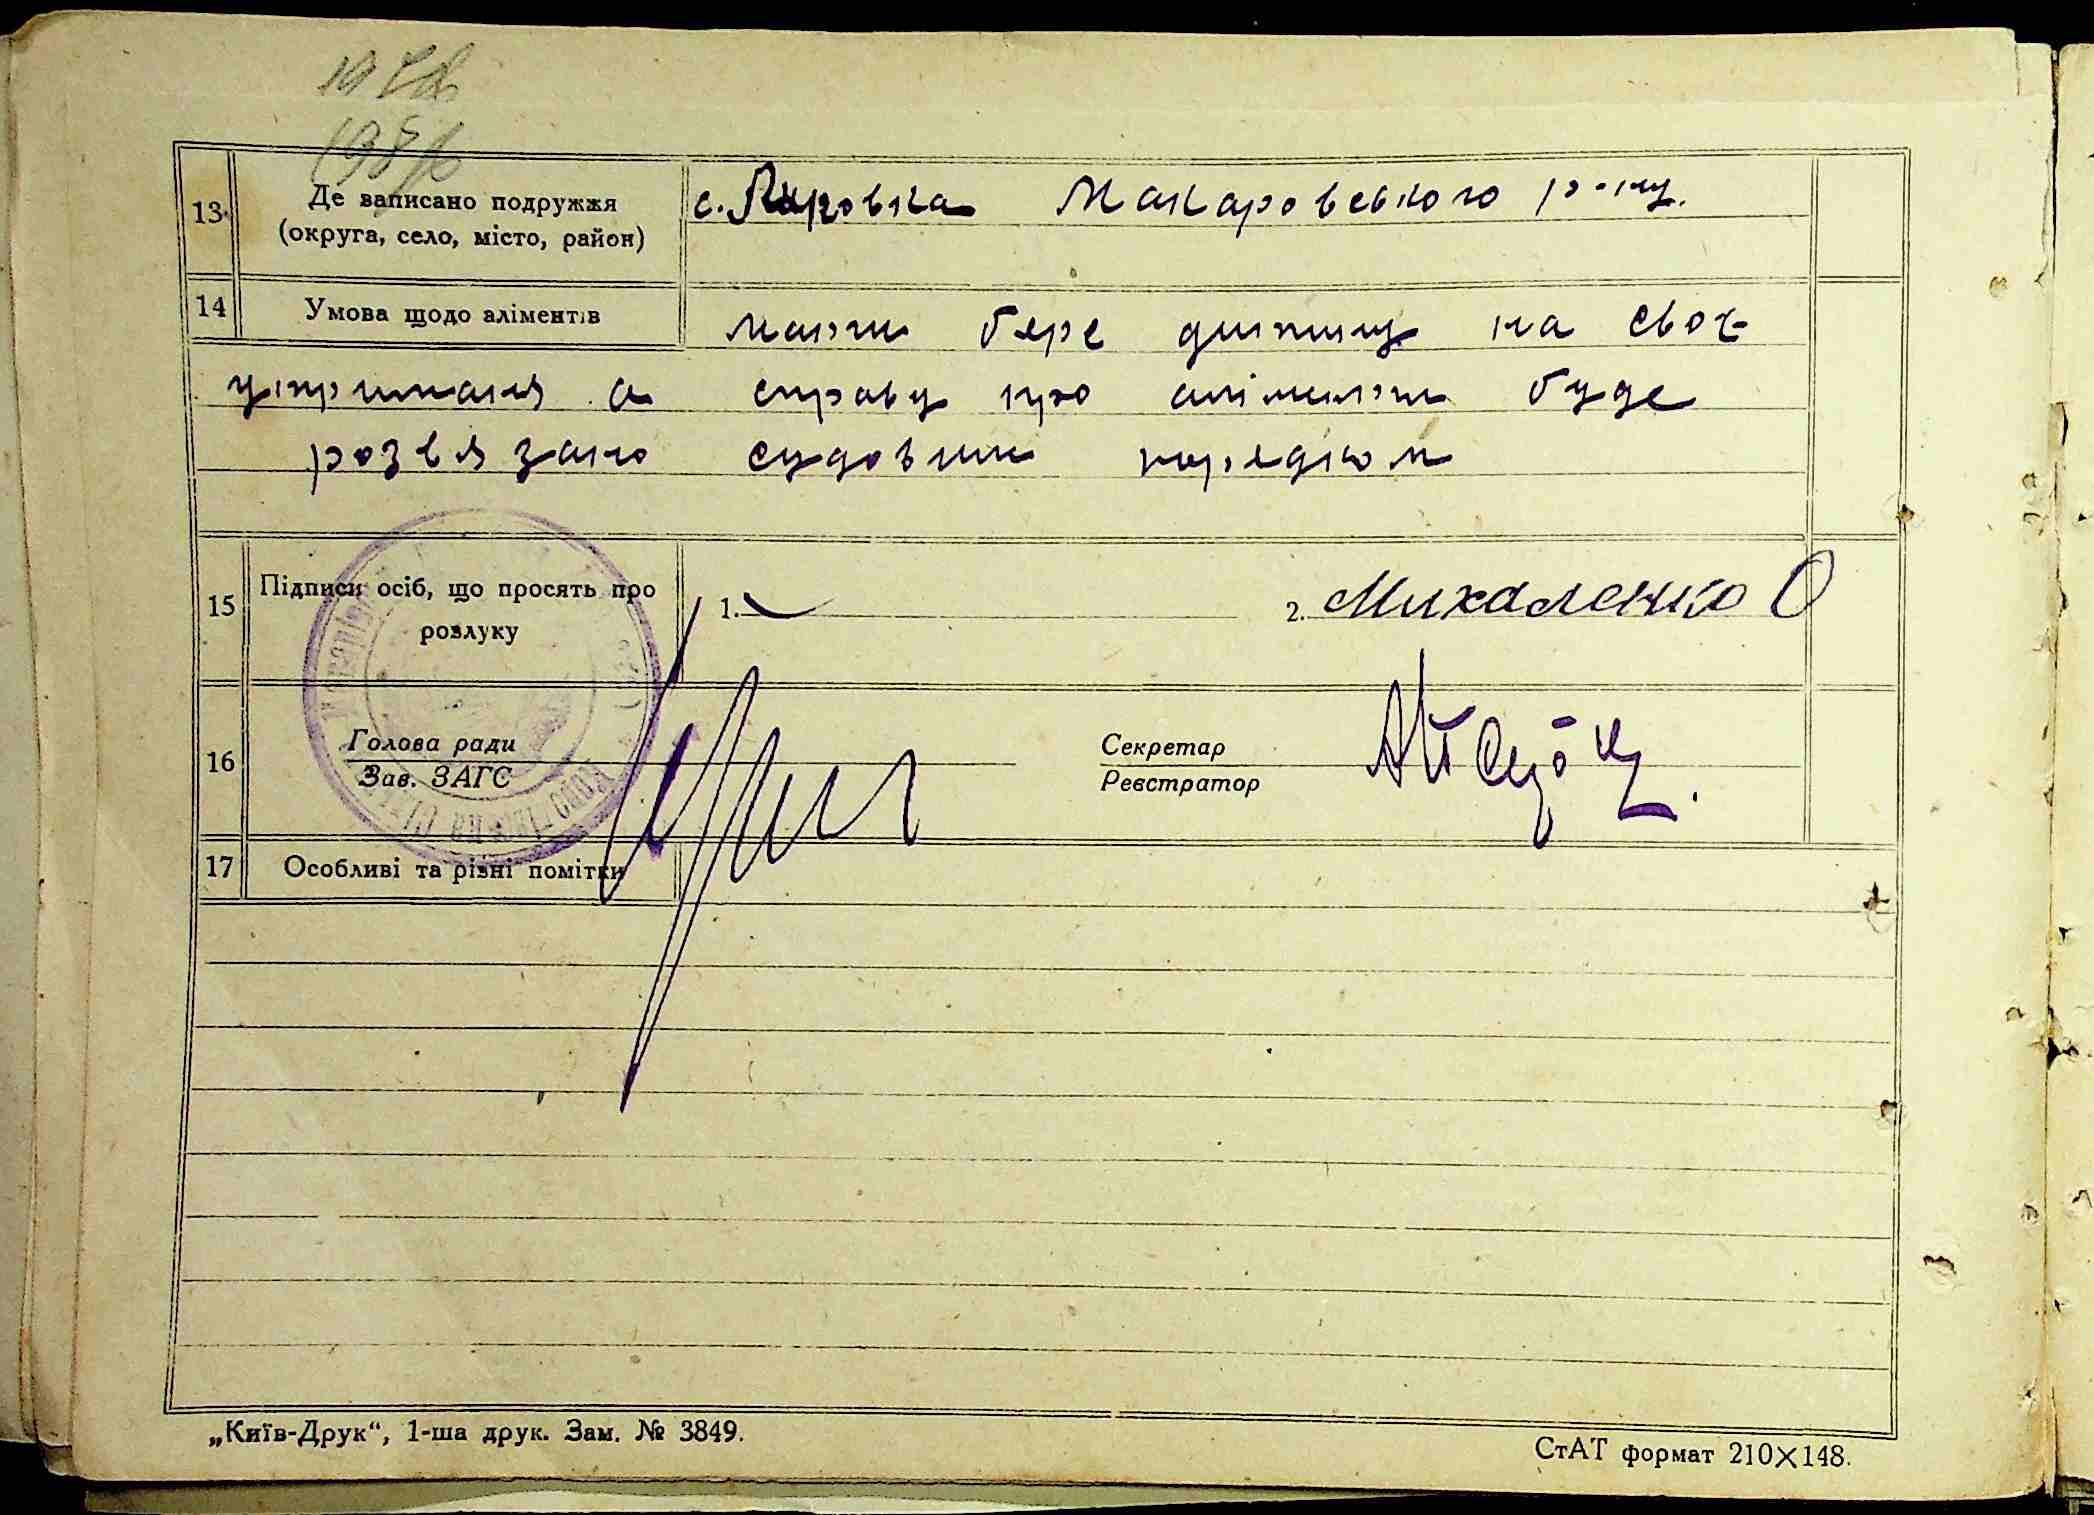 13
Де записано подружжя
(округа, село, місто, район)
с. Макаровського р-ну.
14
Умова щодо аліментів
мати бере дитину на своє
утримания а справу про алименти буде
розвязано судовим порядком
15
Підписи осіб, що просять про
розлуку
1.
2. Михаленко О
16
Голова ради
Зав. ЗАГС
Секретар
Реєстратор
17
Особливі та різні помітки
„Київ-Друк“, 1-ша друк. Зам. № 3849.
СтАТ формат 210×148.